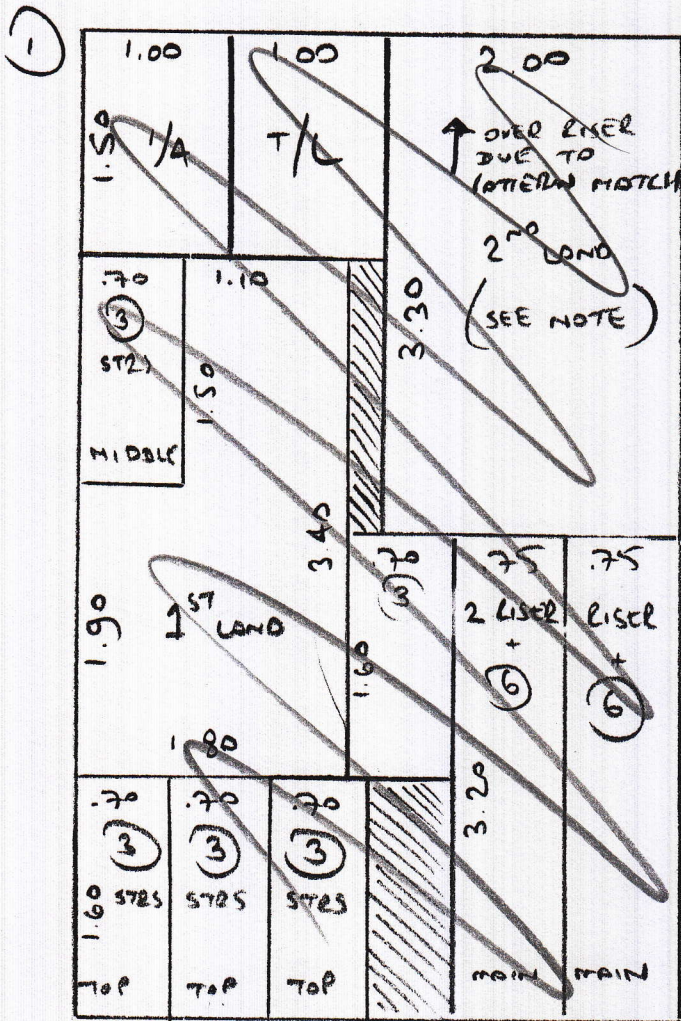 1
1.00
1.00
2.00
1.50
1/A
T/L
OVER RISER
DUE TO
PATTERN MATCH
2ND LAND
(SEE NOTE)
3.30
.70
3
STRS
MIDDLE
1.10
1.50
3.40
1.90
1ST LAND
1.80
.70
3
1.60
.75
2 RISER
+
6
3.20
MAIN
.75
RISER
+
6
MAIN
.70
3
1.60
STRS
TOP
.70
3
STRS
TOP
.70
3
STRS
TOP